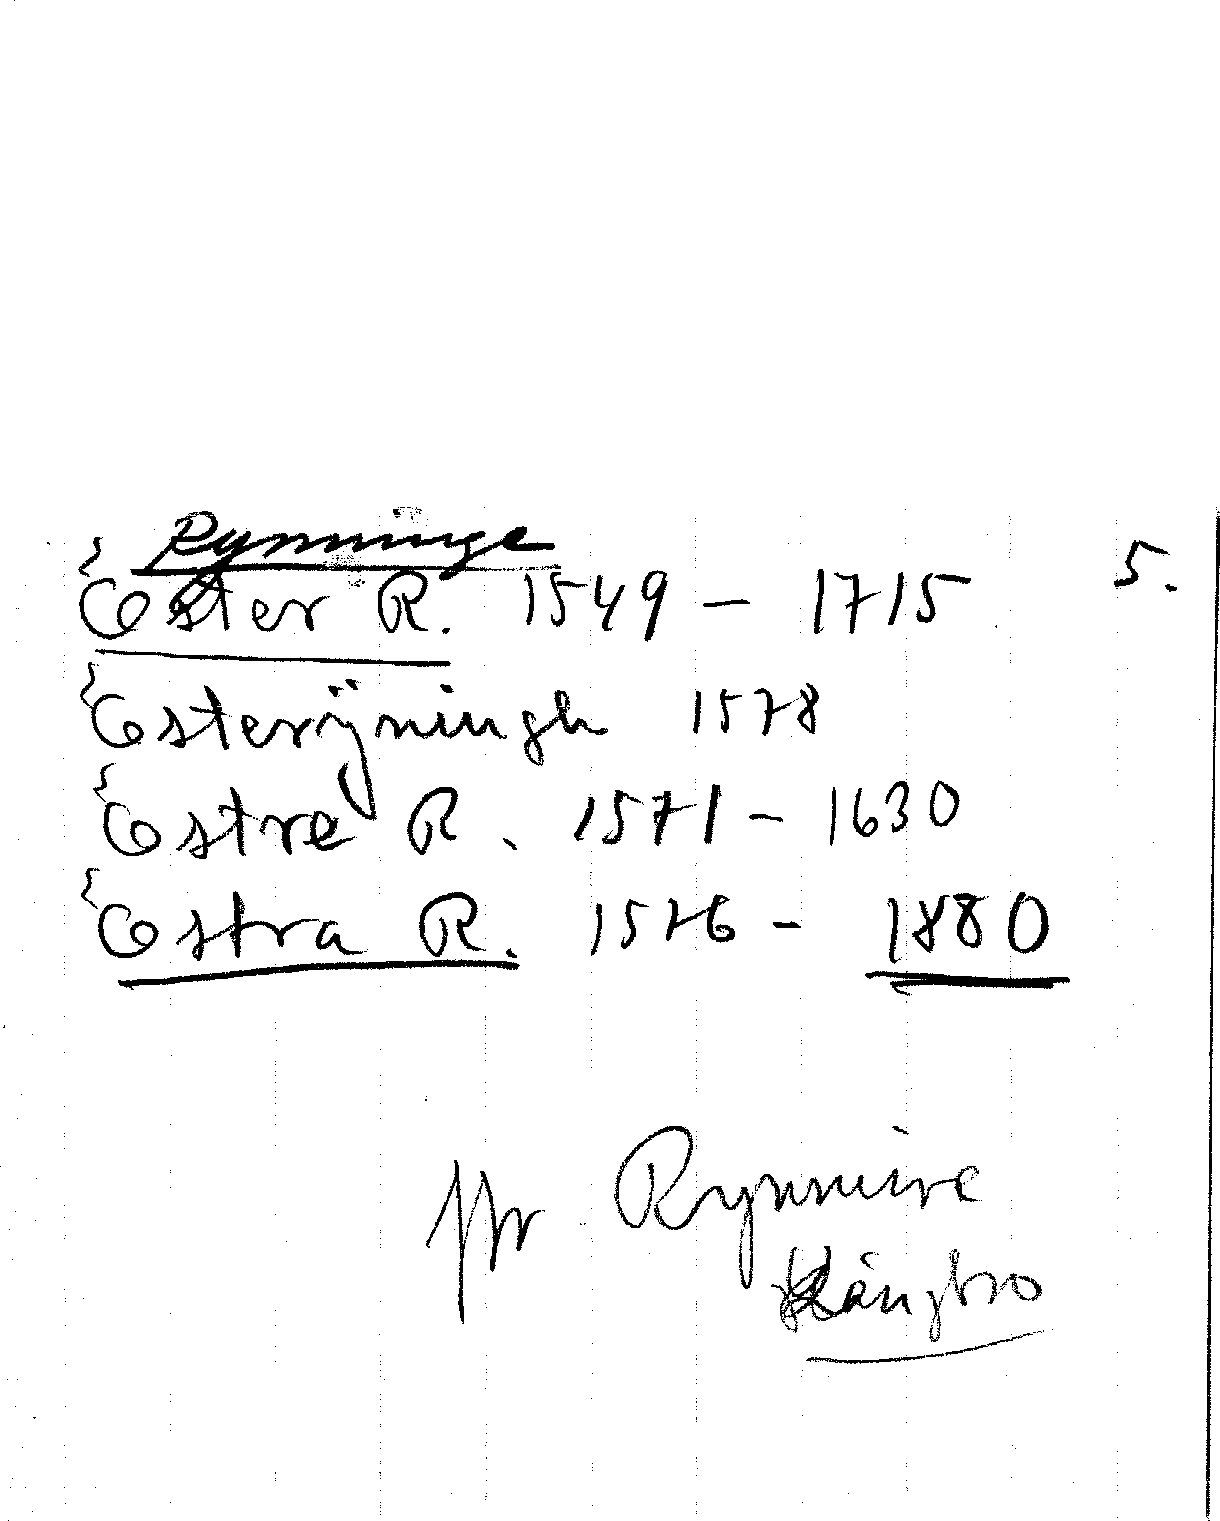 Rynninge
Öster R. 1549 – 1715 5.
Österÿningh 1578
Östre R. 1571 – 1630
Östra R. 1576 – 1880
Hr Rynninge
Längbro